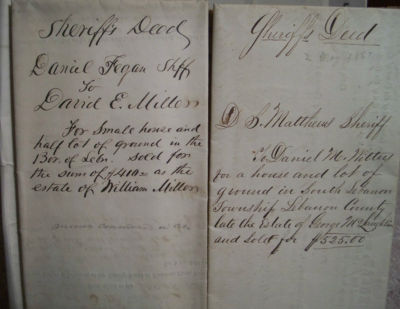 Sheriff's Deed
Daniel Fegan Shff
To
David E. Miller
For Small house and
half lot of ground in the
Bor. of Leb. sold for
the sum of $410 as the
estate of William Miller
Sheriff's Deed
D S. Matthews Sheriff
To Daniel M.
for a house and lot of
ground in South Lebanon
Township Lebanon County
late the Estate of George
and Sold for $525.00